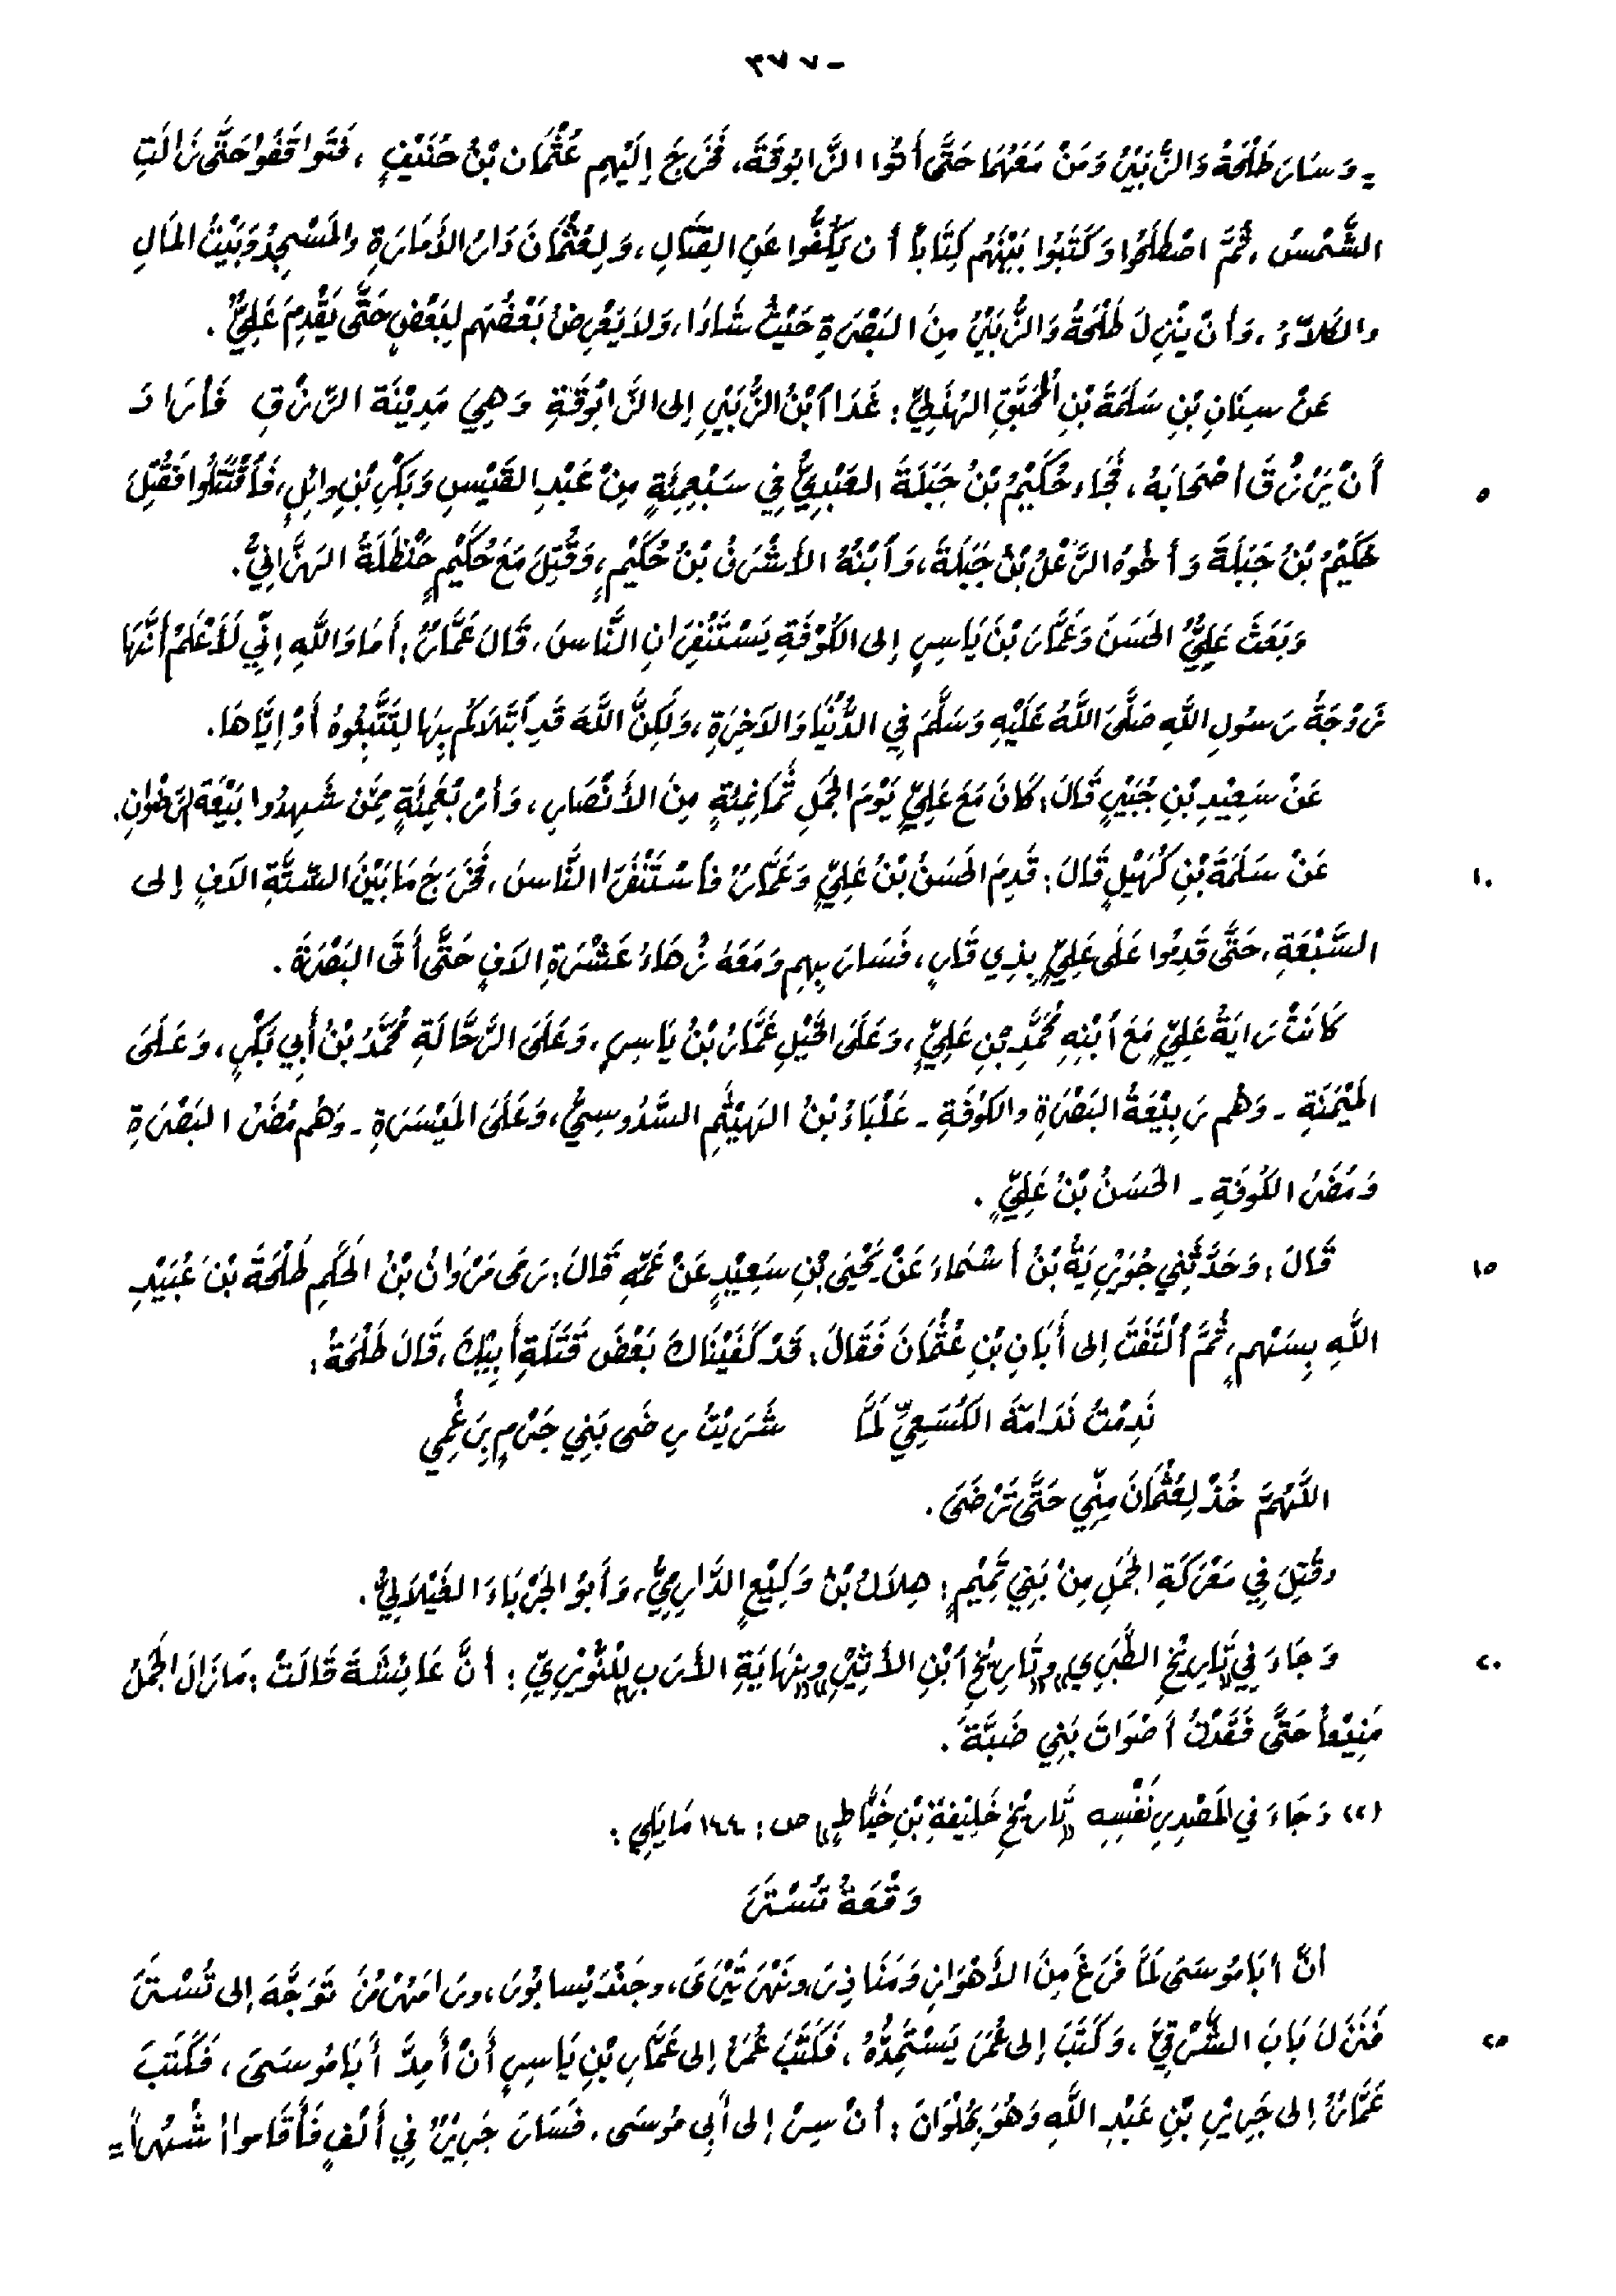 - ٣٧٧
= وَسَارَ طَلْحَةُ وَالزُّبَيْرُ وَمَنْ مَعَهُمَا حَتَّى أَتُوا الزَّابُوقَةَ، فَخَرَجَ إِلَيْهِم عُثْمَان بْنُ حُنَيْفٍ، فَتَوَاقَفُوا حَتَّى زَالَتِ
الشَّمْسُ، ثُمَّ اصْطَلَحُوا وَكَتَبُوا بَيْنَهُم كِتَاباً أن يَكُفُّوا عَنِ القِتَالِ، وَلِعُثْمَانَ دَارُ الأَمَارَةِ والمَسْجِدُ وَبَيْتُ المَالِ
والكَلاَّءُ، وَأنْ يَنْزِلَ طَلْحَةُ وَالزُّبَيْرُ مِنَ البَصْرَةِ حَيْثُ شَاءَا، وَلاَ يَعْرِضُ بَعْضُهُم لِبَعْضٍ حَتَّى يَقْدِمَ عَلِيٌّ.
عَنْ سِنَانِ بْنِ سَلَمَةَ بْنِ المُحَبَّقِ الهُذَلِيِّ: غَدَا ٱبْنُ الزُّبَيْرِ إلى الزَّابُوقَةِ وَهِيَ مَدِيْنَة الرِّزْقِ فَأَرَادَ
أَنْ يَرْزُقَ أصْحَابَهُ، فَجَاء حُكَيْمُ بْنُ جَبَلَةَ العَبْدِيُّ فِي سَبْعِمِئَةٍ مِنْ عَبْدِ القَيْسِ وَبَكْرِ بْنِ وائِلٍ، فَٱقْتَتَلُوا فَقُتِلَ
٥
حُكَيْمُ بْنُ جَبَلَةَ وَأخُوهُ الرَّعْلُ بْنُ جَبَلَةَ، وَٱبْنُهُ الأشْرَفُ بْنُ حُكَيْمٍ، وَقُتِلَ مَعَ حُكَيْمٍ حَنْظَلَةُ الهِزَّانِيُّ.
وَبَعَثَ عَلِيٌّ الحَسَنَ وَعَمَّارَ بْنَ يَاسِرٍ إلى الكُوْفَةِ يَسْتَنْفِرَانِ النَّاسَ، قَالَ عَمَّارٌ: أَمَا وَاللَّهِ إنِّي لَأَعْلَمُ أَنَّهَا
زَوْجَةُ رَسُولِ اللَّهِ صَلَّى اللَّهُ عَلَيْهِ وَسَلَّمَ فِي الدُّنْيَا وَالآخِرَةِ، وَلَكِنَّ اللَّهَ قَدِ ٱبْتَلاَكُم بِهَا لِتَتَّبِعُوهُ أوْ إيَّاهَا.
عَنْ سَعِيْدِ بْنِ جُبَيْرٍ قَالَ: كَانَ مَعَ عَلِيٍّ يَوْمَ الجَمَلِ ثَمَانِمِئَةٍ مِنَ الأَنْصَارِ، وَأرْبَعِمِئَةٍ مِمَّن شَهِدُوا بَيْعَةَ الرِّضْوَانِ.
عَنْ سَلَمَةَ بْنِ كُهَيْلٍ قَالَ: قَدِمَ الحَسَنُ بْنُ عَلِيٍّ وَعَمَّارٌ فٱسْتَنْفَرَا النَّاسَ، فَخَرَجَ مَا بَيْنَ السِّتَّةِ الآفٍ إلى
١٠
السَّبْعَةِ، حَتَّى قَدِمُوا عَلَى عَلِيٍّ بِذِي قَارٍ، فَسَارَ بِهِم وَمَعَهُ زُهَاءُ عَشْرَةِ الآفٍ حَتَّى أَتَى البَصْرَةَ.
كَانَتْ رَايَةُ عَلِيٍّ مَعَ ٱبْنِهِ مُحَمَّدِ بْنِ عَلِيٍّ، وَعَلَى الخَيْلِ عَمَّارُ بْنُ يَاسِرٍ، وَعَلَى الرَّجَّالَةِ مُحَمَّدُ بْنُ أَبِي بَكْرٍ، وَعَلَى
المَيْمَنَةِ - وَهُم رَبِيْعَةُ البَصْرَةِ والكوُفَةِ - عَلْبَاءُ بْنُ الهَيْثَمِ السَّدُوسِيُّ، وَعَلَى المَيْسَرَةِ - وَهُم مُضَرُ البَصْرَةِ
وَمُضَرُ الكوُفَةِ - الحَسَنُ بْنُ عَلِيٍّ.
قَالَ: وَحَدَّثَنِي جُوَيْرِيَةُ بْنُ أسْمَاءَ عَنْ يَحْيَى بْنِ سَعِيْدٍ عَنْ عَمِّهِ قَالَ: رَمَى مَرْوَانُ بْنُ الحَكَمِ طَلْحَةَ بْنَ عُبَيْدِ
١٥
اللَّهِ بِسَهْمٍ، ثُمَّ ٱلْتَفَتَ إلى أَبَانِ بْنِ عُثْمَانَ فَقَالَ: قَدْ كَفَيْنَاكَ بَعْضَ قَتَلَةِ أَبِيْكَ، قَالَ طَلْحَةُ:
نَدِمْتُ نَدَامَةَ الكُسَعِيِّ لَمَّا شَرَيْتُ رِضَى بَنِي جَرْمٍ بِرَغْمِي
اللَّهُمَّ خُذْ لِعُثْمَانَ مِنِّي حَتَّى تَرْضَى.
وقُتِلَ فِي مَعْرَكَةِ الجَمَلِ مِنْ بَنِي تَمِيْمٍ: هِلاَلُ بْنُ وَكِيْعٍ الدَّارِمِيُّ، وَأَبُو الجَرْبَاءَ الغَيْلاَنِيُّ.
وَجَاءَ فِي «تَارِيْخِ الطَّبَرِي» و«تَارِيْخِ ٱبْنِ الأثِيْرِ» و«نِهَايَةِ الأرَبِ لِلنُّوَيْرِيِّ»: أنَّ عَائِشَةَ قَالَتْ: مَا زَالَ الجَمَلُ
٢٠
مَنِيْعاً حَتَّى فَقَدْتُ أصْوَاتَ بَنِي ضَبَّةَ.
(٢) وَجَاءَ فِي المَصْدَرِ نَفْسِهِ «تَارِيْخِ خَلِيْفَةَ بْنِ خَيَّاطٍ» ص: ١٤٤ مَايَلِي:
وَقْعَةُ تُسْتَرَ
أنَّ أبَا مُوسَى لَمَّا فَرَغَ مِنَ الأَهْوَازِ وَمَنَاذِرَ، ونَهْرِ تِيْرَى، وجَنْدَيْسابُورَ، ورَامَهُرْمُزَ تَوَجَّهَ إلى تُسْتَرَ
فَنَزَلَ بَابَ الشَّرْقِيِّ، وَكَتَبَ إلى عُمَرَ يَسْتَمِدُّهُ، فَكَتَبَ عُمَرُ إلى عَمَّارِ بْنِ يَاسِرٍ أَنْ أَمِدَّ أَبَا مُوسَى، فَكَتَبَ
٢٥
عَمَّارٌ إلى جَرِيْرِ بْنِ عَبْدِ اللَّهِ وَهُوَ بِحُلْوَانَ: أنْ سِرْ إلى أَبِي مُوسَى، فَسَارَ جَرِيْرٌ فِي أَلْفٍ فَأَقَاموا أشْهُراً =